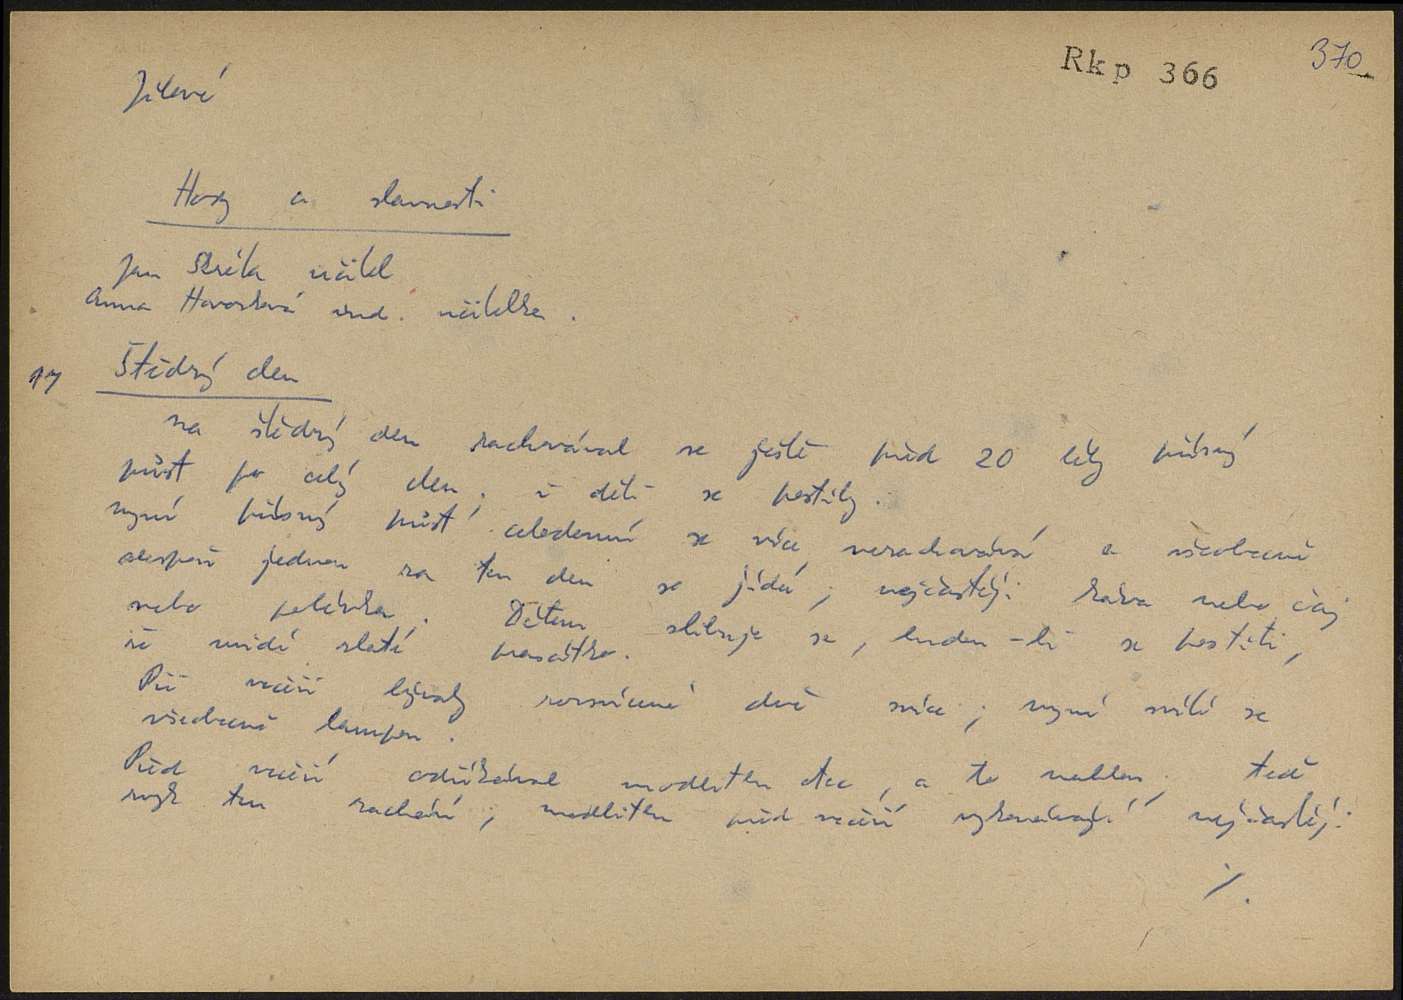 Rkp 366
370
Jílové
Hody a slavnosti
Jan učitel
Anna Havorková ind. učitelka.
17 Štědrý den
na štědrý den zachovával se ještě před 20 léty přísný
půst po celý den, i děti se postily.
nyní přísný půst celodenní se více nezachovává a všeobecně
alespoň jednou za ten den se jídá; nejčastěji káva nebo čaj
nebo polévka. Dětem slibuje se, budou-li se postiti,
že uvidí zlaté prasátko.
Při večeři bývaly rozsvícené dvě svíce; nyní svítí se
všeobecně lampou.
Před večeří odříkával modlitbu otec, a to nahlas, teď
zvyk ten zachází; modlitbu před večeří vykonávají nejčastěji
./.